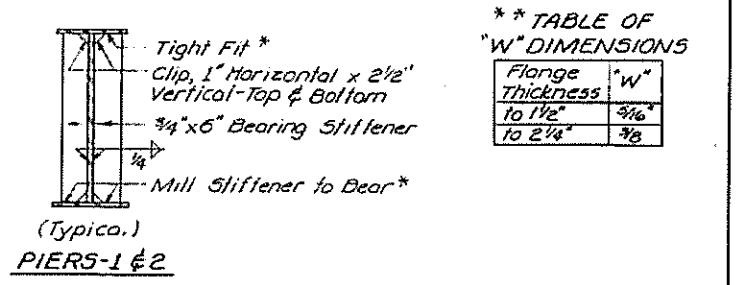 Tight Fit *
Clip, 1" Horizontal x 2½"
Vertical-Top & Bottom
¾"x6" Bearing Stiffener
¼
Mill Stiffener to Bear*
(Typica.)
PIERS-1 & 2
** TABLE OF
"W" DIMENSIONS
Flange Thickness "W"
to 1½" 5/16"
to 2¼" 3/8